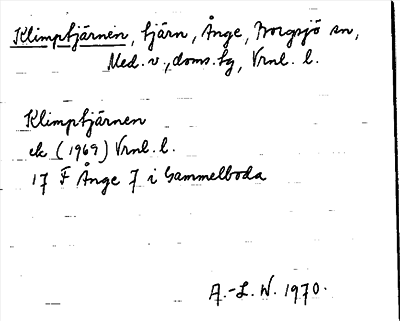 Klimptjärnen, tjärn, Ånge, Borgsjö sn,
Med. v., doms. tg, Vrnl. l.
Klimptjärnen
ek (1969) Vrnl. l.
17 F Ånge 7 i Gammelboda
A.-L. W. 1970.